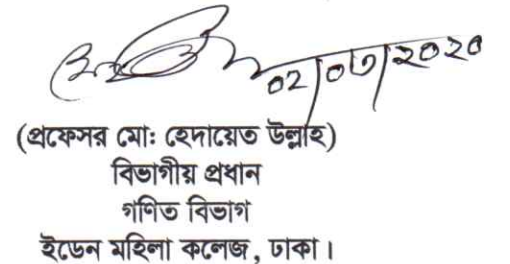 ০২|০৩|২০২০
(প্রফেসর মো: হেদায়েত উল্লাহ)
বিভাগীয় প্রধান
গণিত বিভাগ
ইডেন মহিলা কলেজ, ঢাকা।